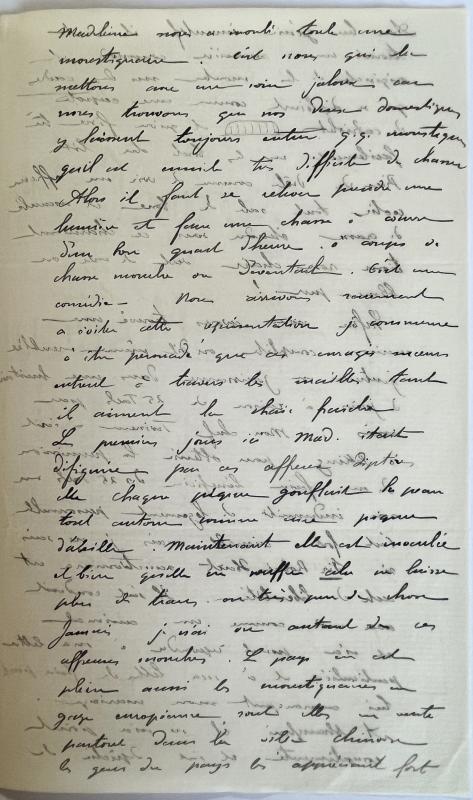 Madeleine nous a monté toute une
moustiquaire. C'est nous qui la
mettons avec un soin jaloux car
nous trouvons que nos deux domestiques
y laissent toujours entrer q.q. moustiques
qu'il est ensuite très difficile de chasser
Alors il faut se relever prendre une
lumière et faire une chasse à courre
d'un bon quart d'heure à coups de
chasse mouche ou d'éventail. C'est une
comédie – Nous arrivons rarement
à éviter cette représentation je commence
à être persuadé que ces enragés
entrent à travers les mailles tant
il aiment la chair fraîche
Le premiers jours ici Mad. était
défigurée par ces affreux diptères
elle chaque piqure gonflait la peau
tout autour comme une piqure
d'abeille. Maintenant elle est inoculée
et bien qu'elle en souffre cela ne laisse
plus de traces ou très peu de chose
Jamais je n'ai vu autant de ces
affreuses mouches. Le pays en est
plein aussi les moustiquaires en
gaze européenne sont elles en vente
partout dans la ville chinoise
les gens du pays les apprécient fort